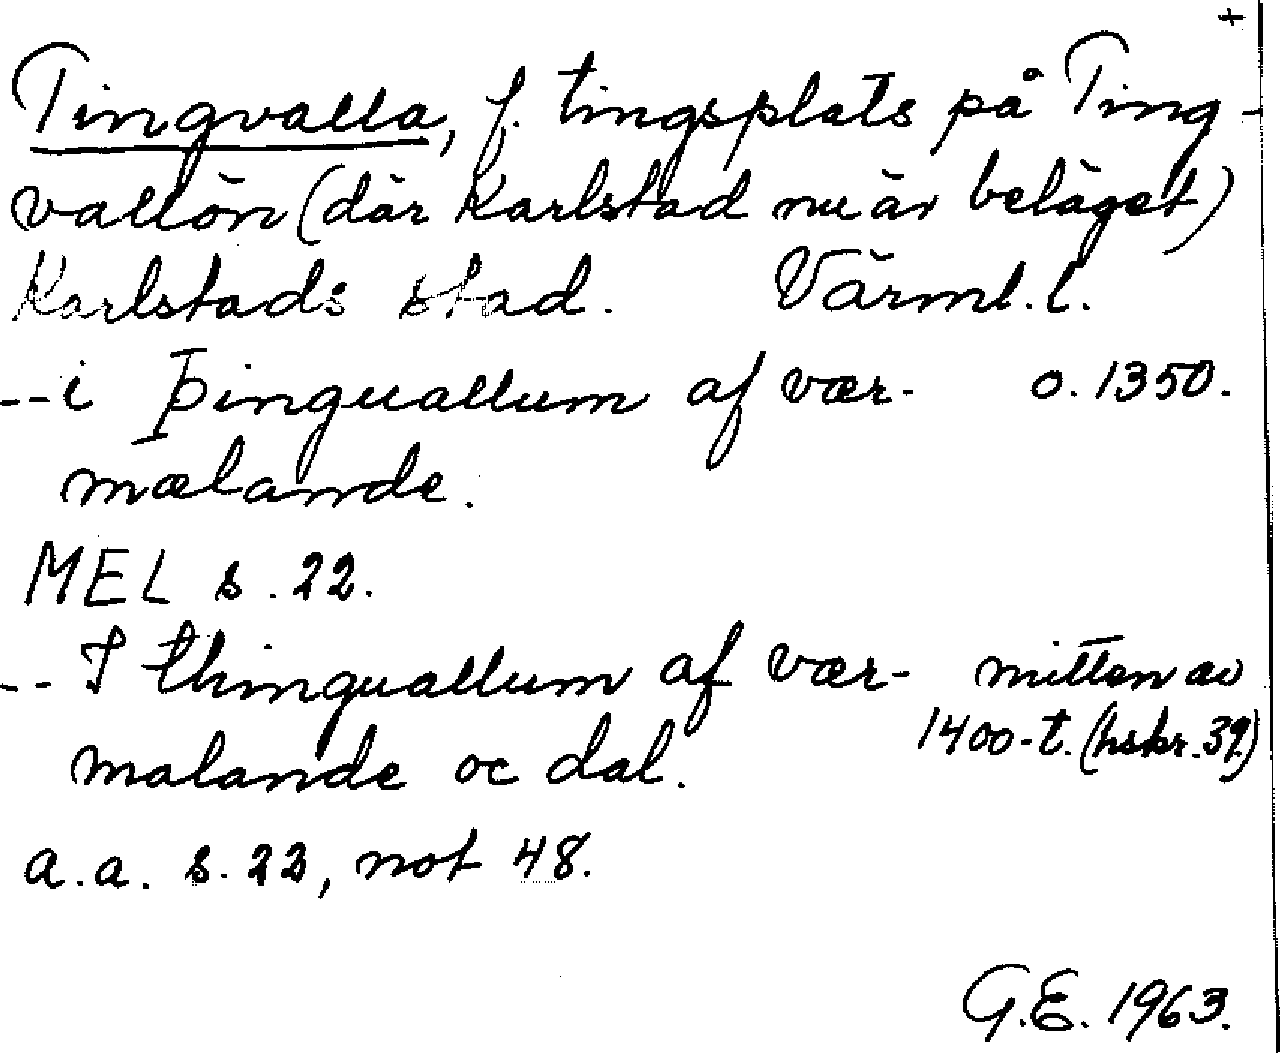 +
Tingvalla, f. tingsplats på Ting-
vallön (där Karlstad nu är beläget)
Karlstads stad. Värml. l.
--i þinguallum af vær- o. 1350.
mælande.
MEL s. 22.
-- I thinguallum af vær- mitten av
malande oc dal. 1400-t. (hskr. 32)
a.a. s. 22, not 48.
G.E. 1963.